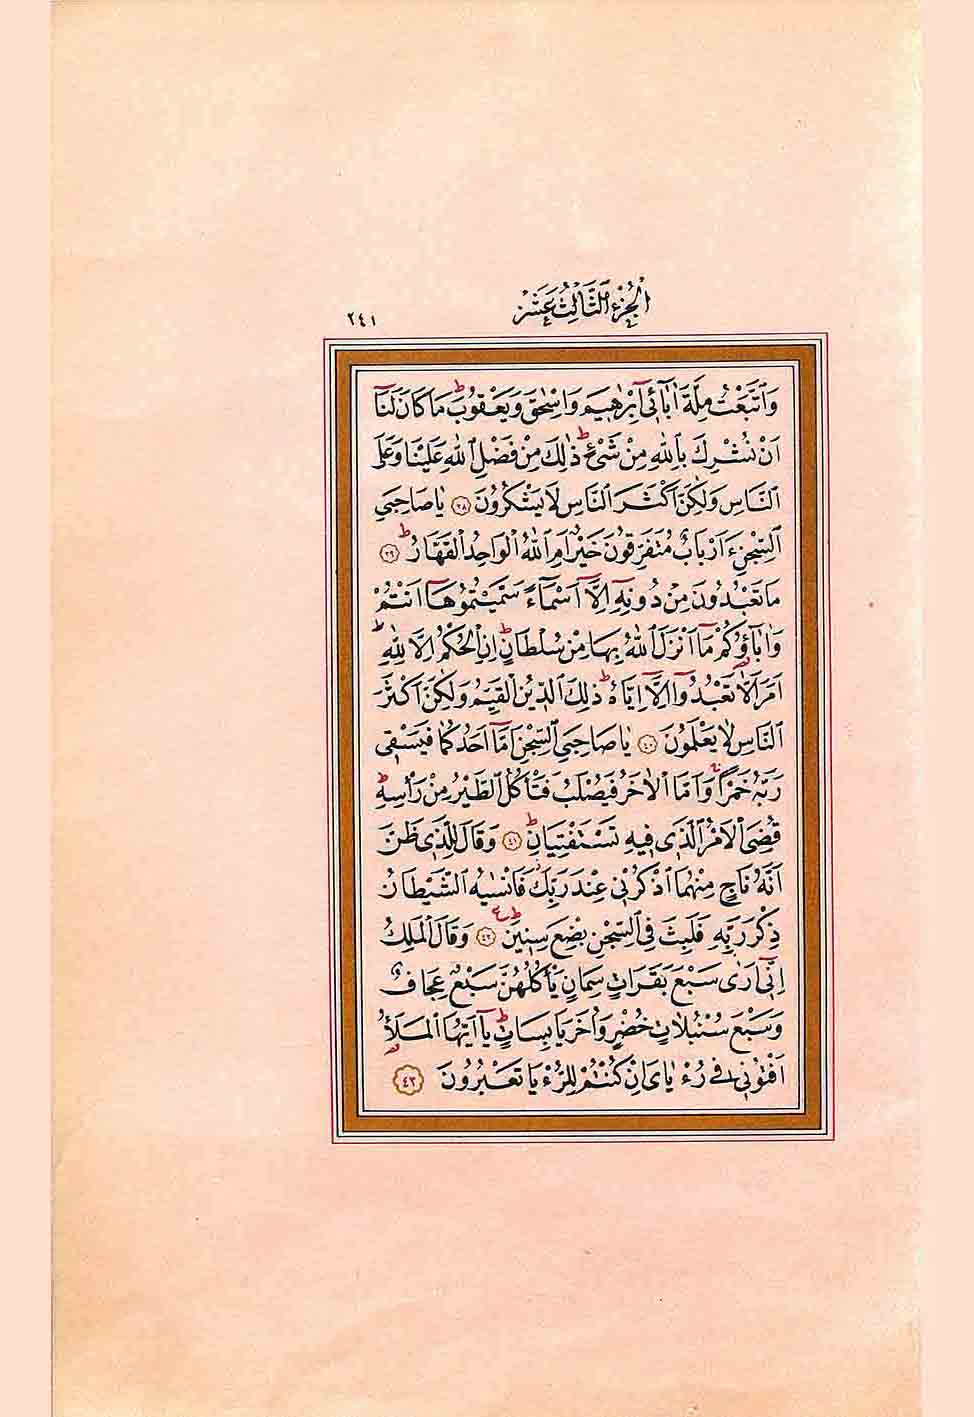 الجزء الثالث عشر
٢٤١
وَاتَّبَعْتُ مِلَّةَ اٰبَٓائ۪ٓي اِبْرٰه۪يمَ وَاِسْحٰقَ وَيَعْقُوبَۜ مَا كَانَ لَنَٓا
اَنْ نُشْرِكَ بِاللّٰهِ مِنْ شَيْءٍۜ ذٰلِكَ مِنْ فَضْلِ اللّٰهِ عَلَيْنَا وَعَلَى
النَّاسِ وَلٰكِنَّ اَكْثَرَ النَّاسِ لَا يَشْكُرُونَ ٣٨ يَا صَاحِبَيِ
السِّجْنِ ءَاَرْبَابٌ مُتَفَرِّقُونَ خَيْرٌ اَمِ اللّٰهُ الْوَاحِدُ الْقَهَّارُۜ ٣٩
مَا تَعْبُدُونَ مِنْ دُونِه۪ٓ اِلَّٓا اَسْمَٓاءً سَمَّيْتُمُوهَٓا اَنْتُمْ
وَاٰبَٓاؤُ۬كُمْ مَٓا اَنْزَلَ اللّٰهُ بِهَا مِنْ سُلْطَانٍۜ اِنِ الْحُكْمُ اِلَّا لِلّٰهِۜ
اَمَرَ اَلَّا تَعْبُدُٓوا اِلَّٓا اِيَّاهُۜ ذٰلِكَ الدّ۪ينُ الْقَيِّمُ وَلٰكِنَّ اَكْثَرَ
النَّاسِ لَا يَعْلَمُونَ ٤٠ يَا صَاحِبَيِ السِّجْنِ اَمَّٓا اَحَدُكُمَا فَيَسْق۪ي
رَبَّهُ خَمْرًاۚ وَاَمَّا الْاٰخَرُ فَيُصْلَبُ فَتَأْكُلُ الطَّيْرُ مِنْ رَأْسِه۪ۜ
قُضِيَ الْاَمْرُ الَّذ۪ي ف۪يهِ تَسْتَفْتِيَانِۜ ٤١ وَقَالَ لِلَّذ۪ي ظَنَّ
اَنَّهُ نَاجٍ مِنْهُمَا اذْكُرْن۪ي عِنْدَ رَبِّكَۘ فَاَنْسٰيهُ الشَّيْطَانُ
ذِكْرَ رَبِّه۪ فَلَبِثَ فِي السِّجْنِ بِضْعَ سِن۪ينَۜ ٤٢ وَقَالَ الْمَلِكُ
اِنّ۪ٓي اَرٰى سَبْعَ بَقَرَاتٍ سِمَانٍ يَأْكُلُهُنَّ سَبْعٌ عِجَافٌ
وَسَبْعَ سُنْبُلَاتٍ خُضْرٍ وَاُخَرَ يَابِسَاتٍۜ يَٓا اَيُّهَا الْمَلَأُ
اَفْتُون۪ي ف۪ي رُءْيَايَ اِنْ كُنْتُمْ لِلرُّءْيَا تَعْبُرُونَ ٤٣